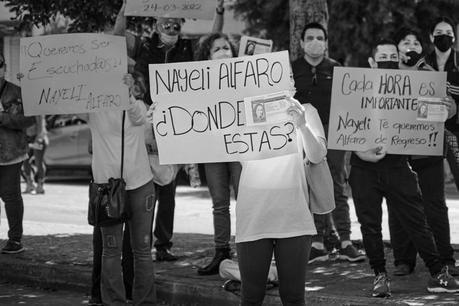 24-03-2022
¡¡Queremos Ser
Escuchad@s!!
NAYELI ALFARO
NAYELI ALFARO
¿DONDE
ESTAS?
CADA HORA
ES
IMPORTANTE
Nayeli Te queremos
de Regreso!!